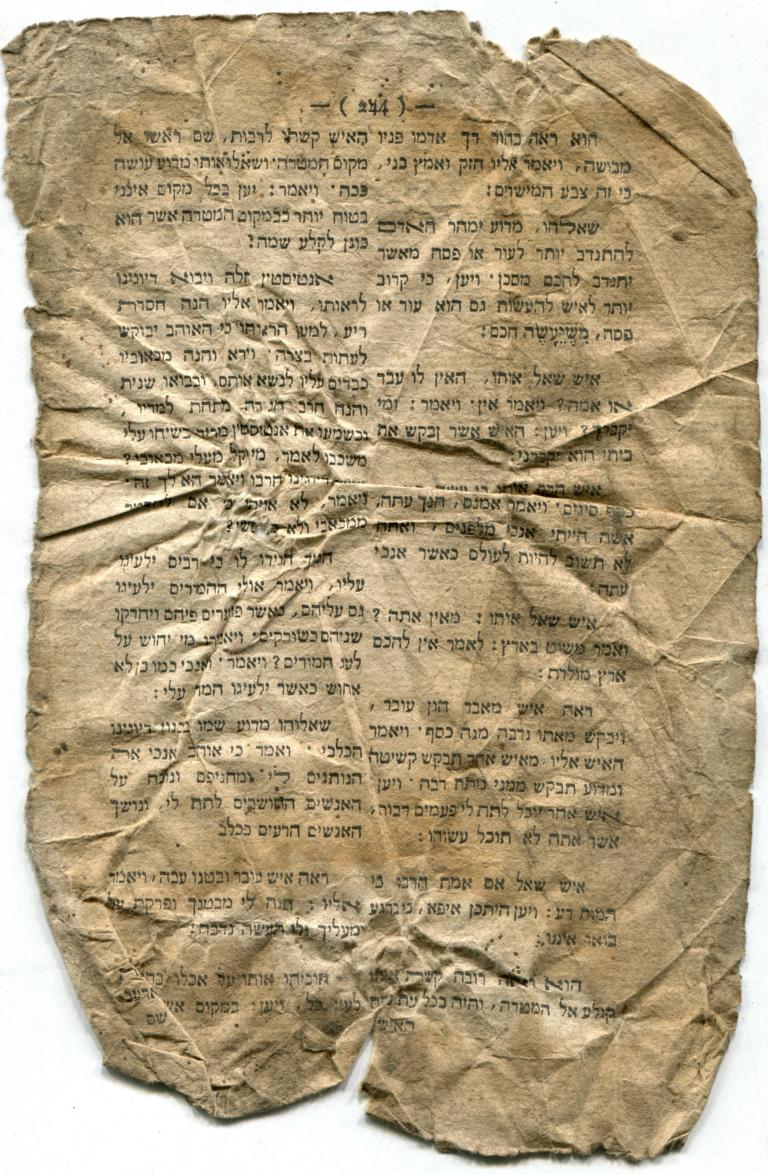 — ( 244 ) —
הוא ראה בחור רך אדמו פניו
מבושה, ויאמר אליו חזק ואמץ בני,
כי זה צבע המישרים:
שאלהו, מדוע ימהר האדם
להתנדב יותר לעור או פסח מאשר
יתנדב לחכם מסכן· ויען, כי קרוב
יותר לאיש להעשות גם הוא עור או
פסח, משיעשה חכם:
איש שאל אותו, האין לו עבד
או אמה? ויאמר אין· ויאמר: ומי
יקברך? ויען: האיש אשר יבקש את
ביתי הוא יקברני:
איש חכם אותו
כסף סיגים· ויאמר אמנם, הנך עתה,
אשר הייתי אנכי מלפנים, ואתה
לא תשוב להיות לעולם כאשר אנכי
עתה:
איש שאל אותו: מאין אתה?
ואמר משוט בארץ: לאמר אין לחכם
ארץ מולדת:
ראה איש מאבד הון עובר,
ויבקש מאתו נדבה מנה כסף· ויאמר
האיש אליו· מאיש אחר תבקש קשיטה
ומדוע תבקש ממני מתת רבה· ויען
איש אחר יוכל לתת לי פעמים רבות,
אשר אתה לא תוכל עשוהו:
איש שאל אם אמת הדבר כי
המות רע: ויען היתכן איפא,
בואו איננו:
הוא ראה רובה קשת
קולע אל המטרה, והיה בכל עת
האיש
האיש קשתו לרבות, שם ראשו אל
מקום המטרה· וישאלו אותו מדוע עושה
ככה· ויאמר: יען בכל מקום אינני
בטוח יותר כבמקום המטרה אשר הוא
כונן לקלע שמה!
אנטיסטין חלה ויבוא דיוגינו
לראותו, ויאמר אליו הנה חסרת
ריע, למען הראותו כי האוהב יבוקש
לעתות בצרה· וירא והנה מכאוביו
כבדים עליו לנשא אותם, ובבואו שנית
והנה חרב חגרה מתחת למדיו,
וכשמעו את אנטיסטין מריר בשיחו עלי
משכבו לאמר, מי יקל מעלי מכאובי?
דיוגינו חרבו ויאמר הא לך זה·
ויאמר, לא אם
ממכאבי ולא
הנה הגידו לו כי רבים ילעיגו
עליו, ויאמר אולי החמרים ילעיגו
גם עליהם, כאשר פוערים פיהם ויחדקו
שניהם כשורקים· ויאמרו מי יחוש על
לעג חמורים? ויאמר· ואנכי כמו כן לא
אחוש כאשר ילעיגו המה עלי:
שאלוהו מדוע שמו בכנוי דיוגינו
הכלבי· ואמר כי אוהב אנכי את
הנותנים לי ומחניפם ונובח על
האנשים החושבים לתת לי, ונושך
האנשים הרעים ככלב
ראה איש עובר ובטנו עבה, ויאמר
אליו: תנה לי מבטנך ופרקת על
מעליך ולי תעשה נדבה!
הוכיחו אותו על אכלו
לעיני כל, ויען: במקום
שם